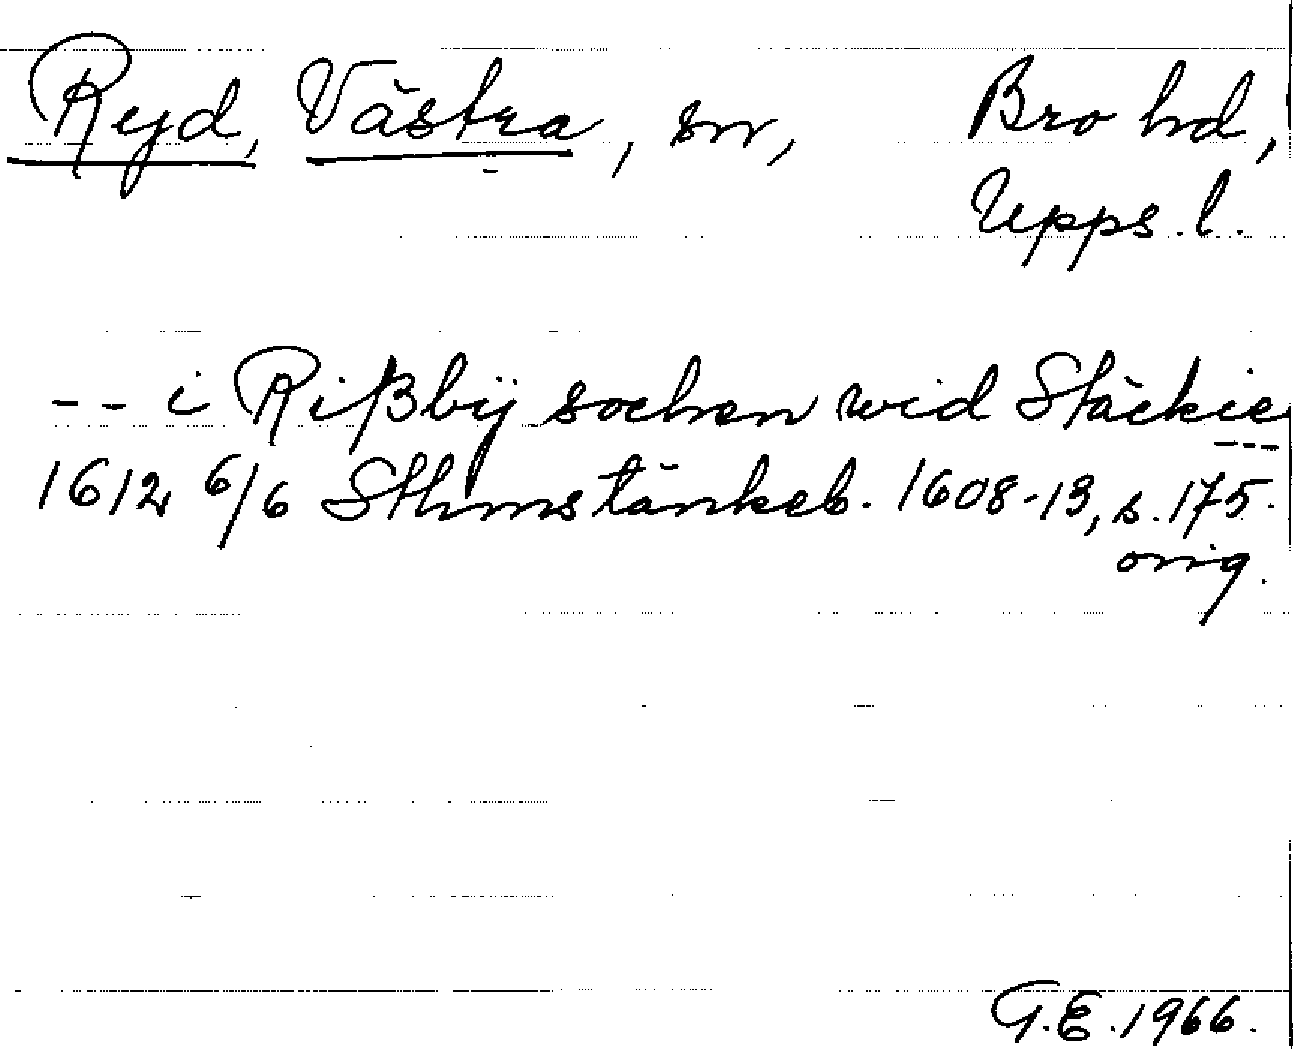 Ryd, Västra, sn, Bro hd,
Upps. l.
-- i Rißbÿ sochen wid Stäckie
---
1612 6/6 Sthms tänkeb. 1608-13, s. 175.
orig.
G.E. 1966.